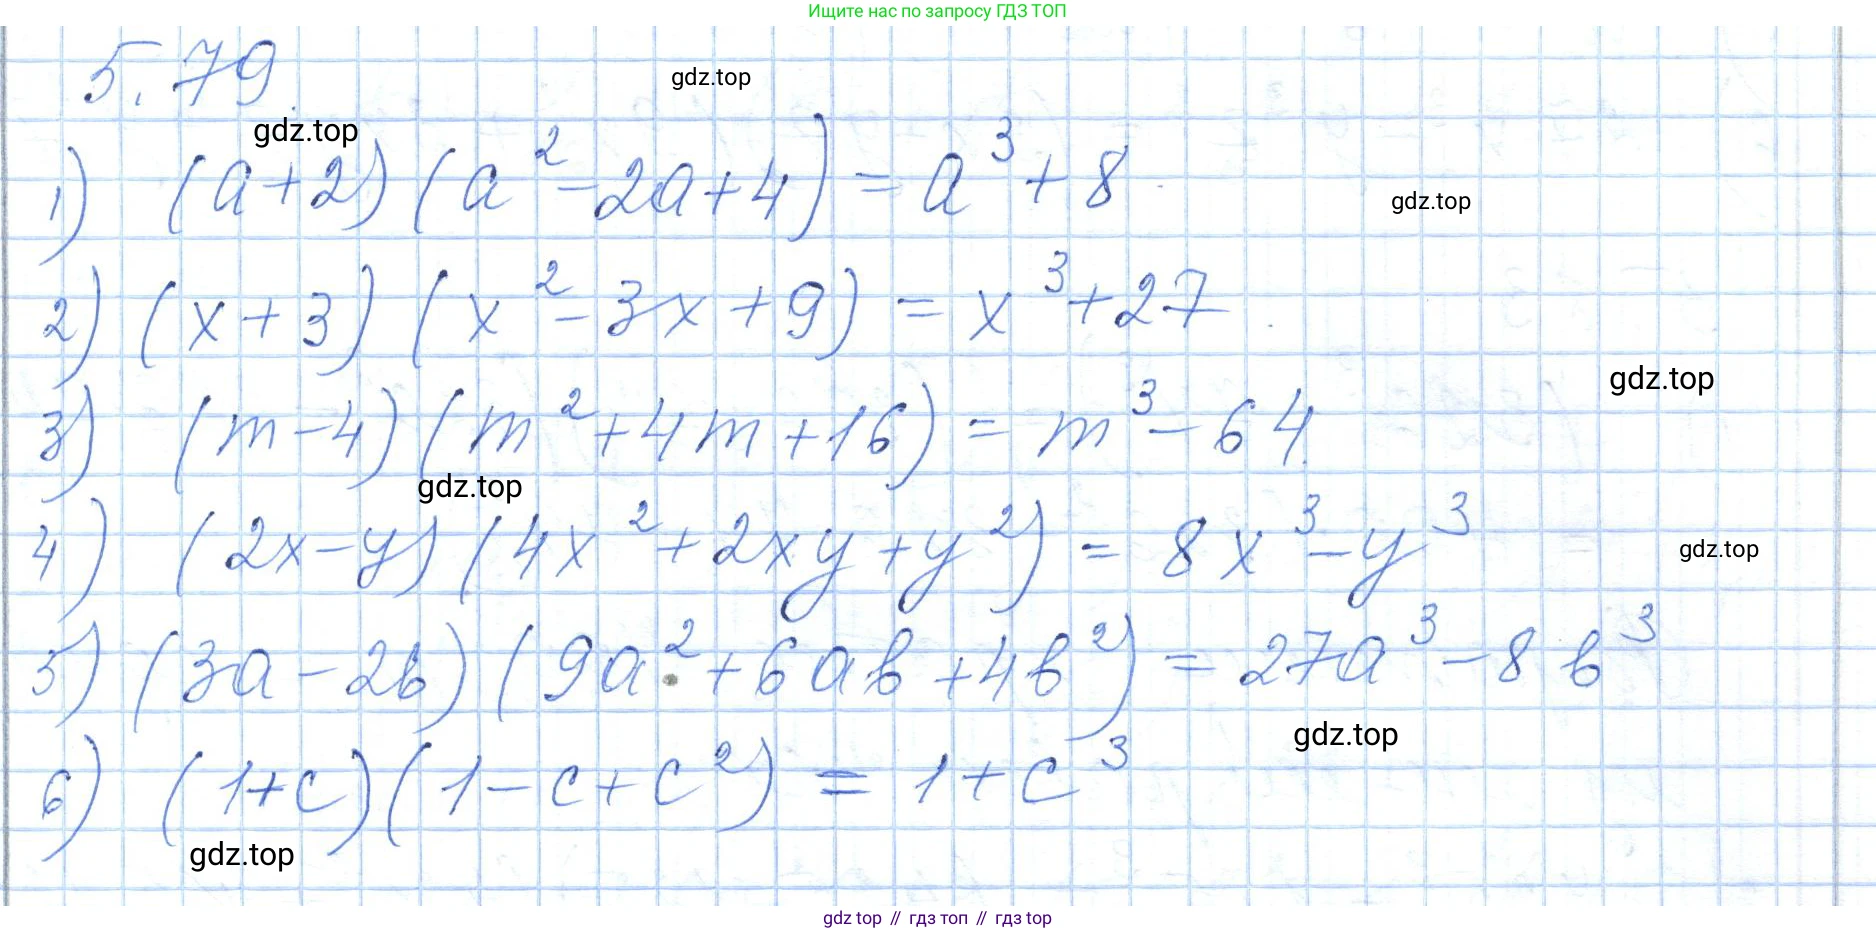 Ищите нас по запросу ГДЗ ТОП
5.79
gdz.top
gdz.top
1) (a+2)(a²-2a+4)=a³+8
gdz.top
2) (x+3)(x²-3x+9)=x³+27
gdz.top
3) (m-4)(m²+4m+16)=m³-64
gdz.top
4) (2x-y)(4x²+2xy+y²)=8x³-y³
gdz.top
5) (3a-2b)(9a²+6ab+4b²)=27a³-8b³
gdz.top
6) (1+c)(1-c+c²)=1+c³
gdz.top
gdz top // гдз топ // gdz top